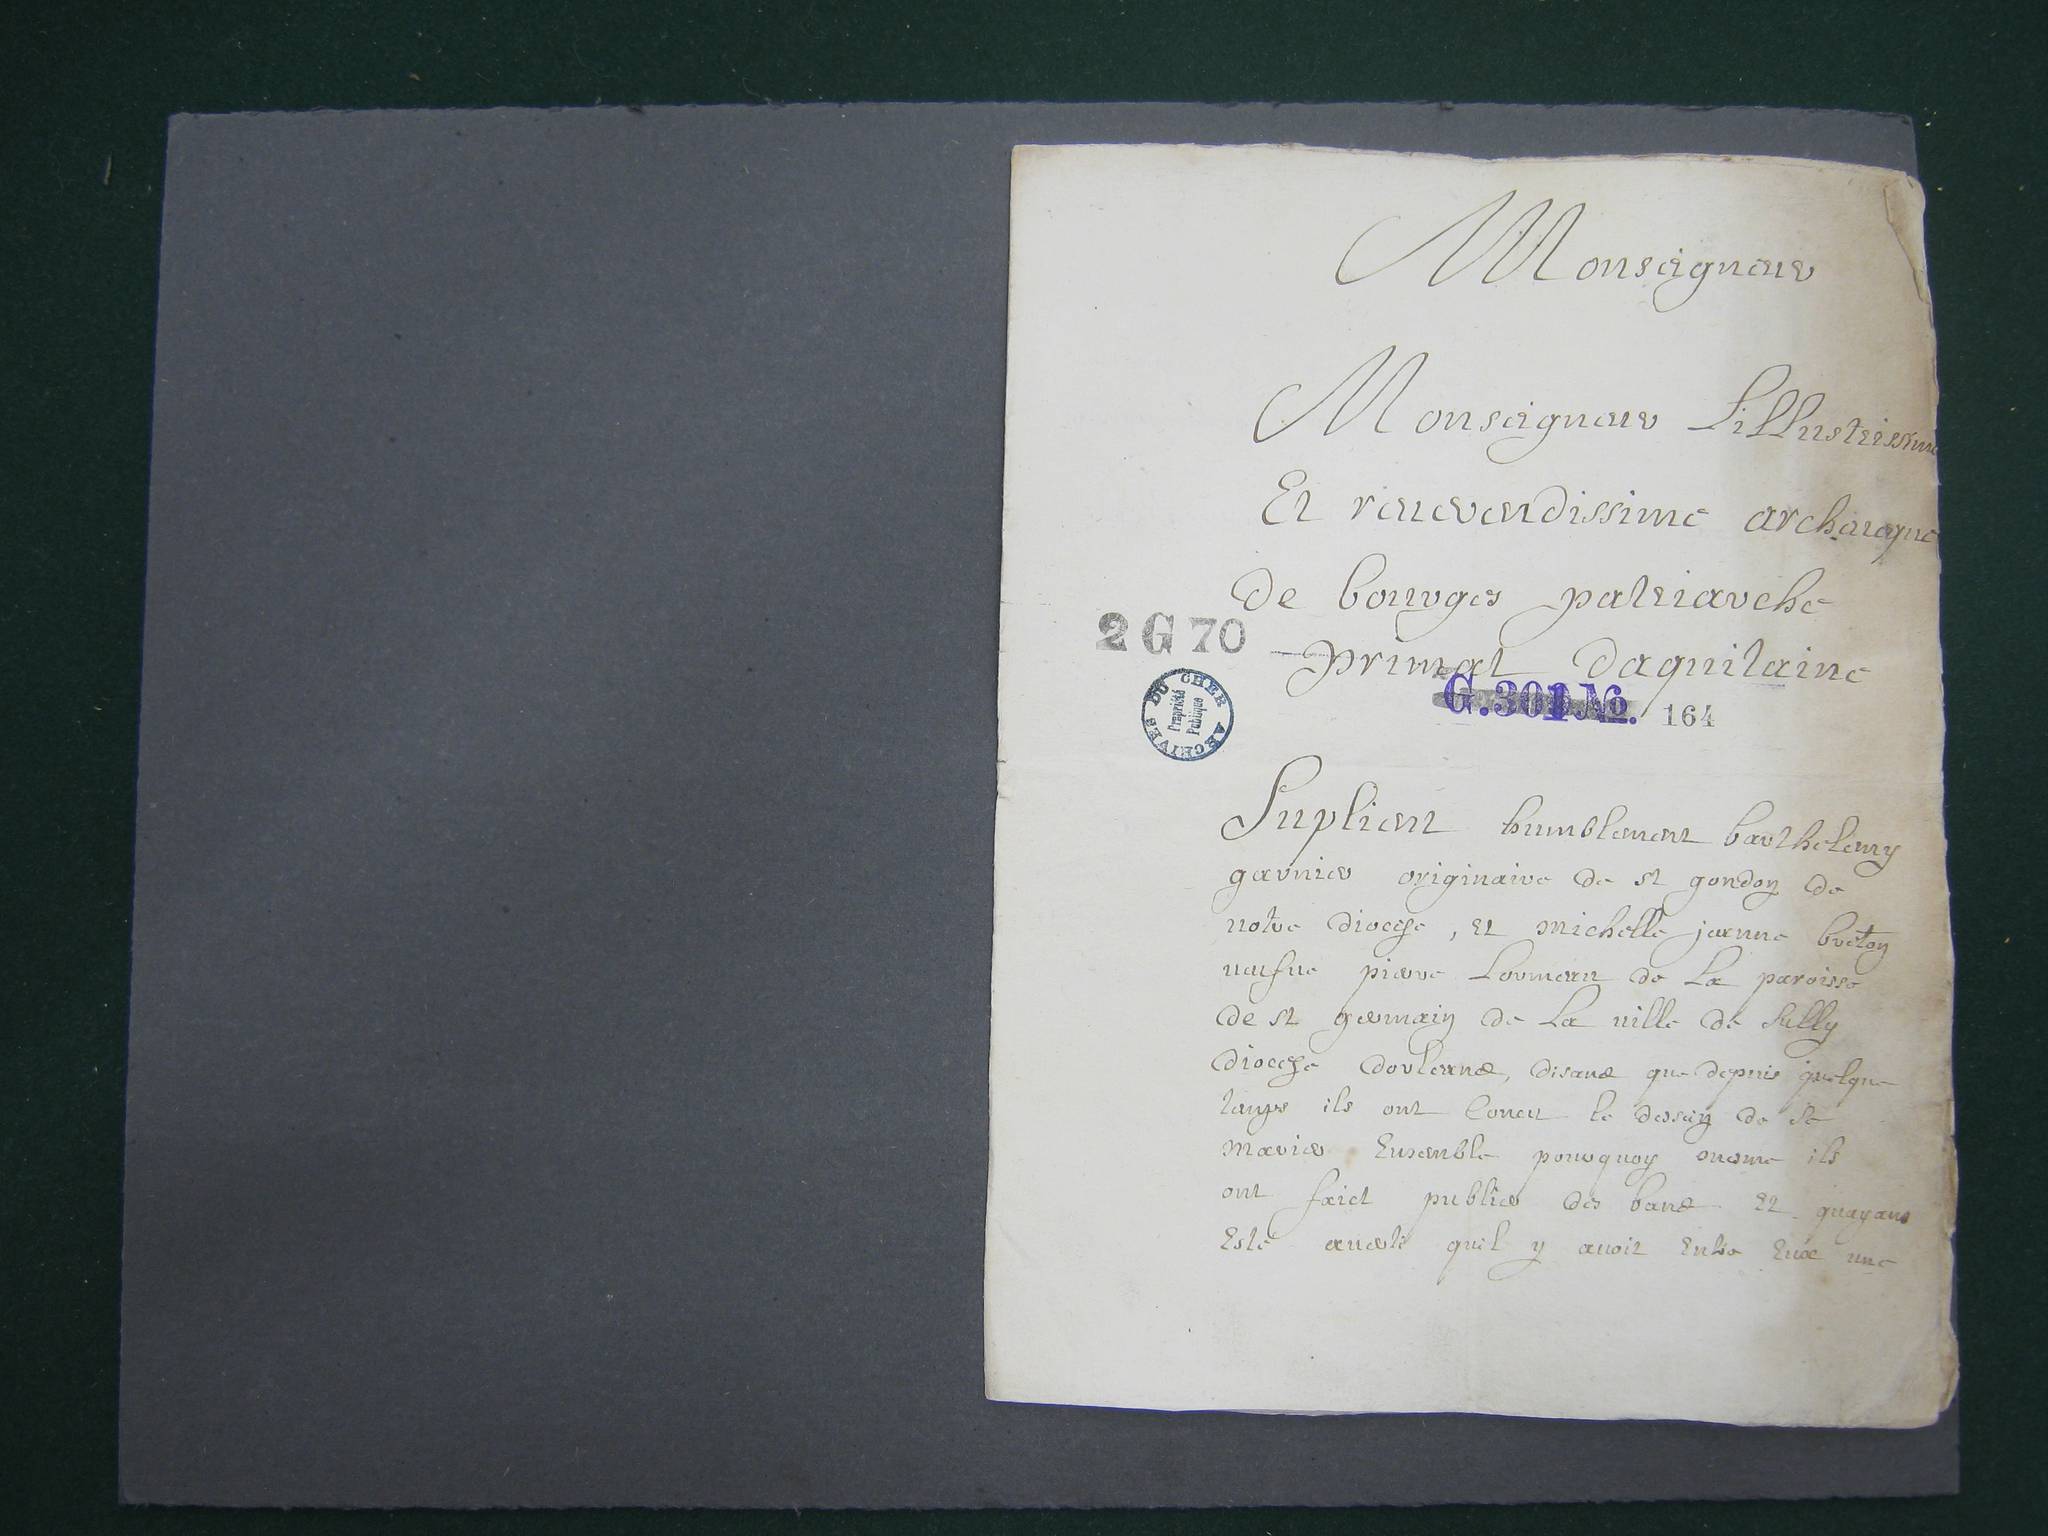 Monseigneur
Monseigneur Lillustrissime
Et reuerendissime archeueque
de bourges patriarche
2 G 70
primat daquitaine
G.301.No. 164
ARCHIVES DU CHER
Propriété
Publique
Suplient humblement barthelemy
garnier originaire de st gondon de
notre diocese, et michelle jeanne breton
ueufue pierre Lormeau de La paroisse
de st germain de La uille de sully
diocese dorleans, disans que depuis quelque
temps ils ont le dessein de se
marier Ensemble pourquoy mesme ils
ont faict publier des bans Et quayans
Esté auerti quil y auoit Entre Eux une